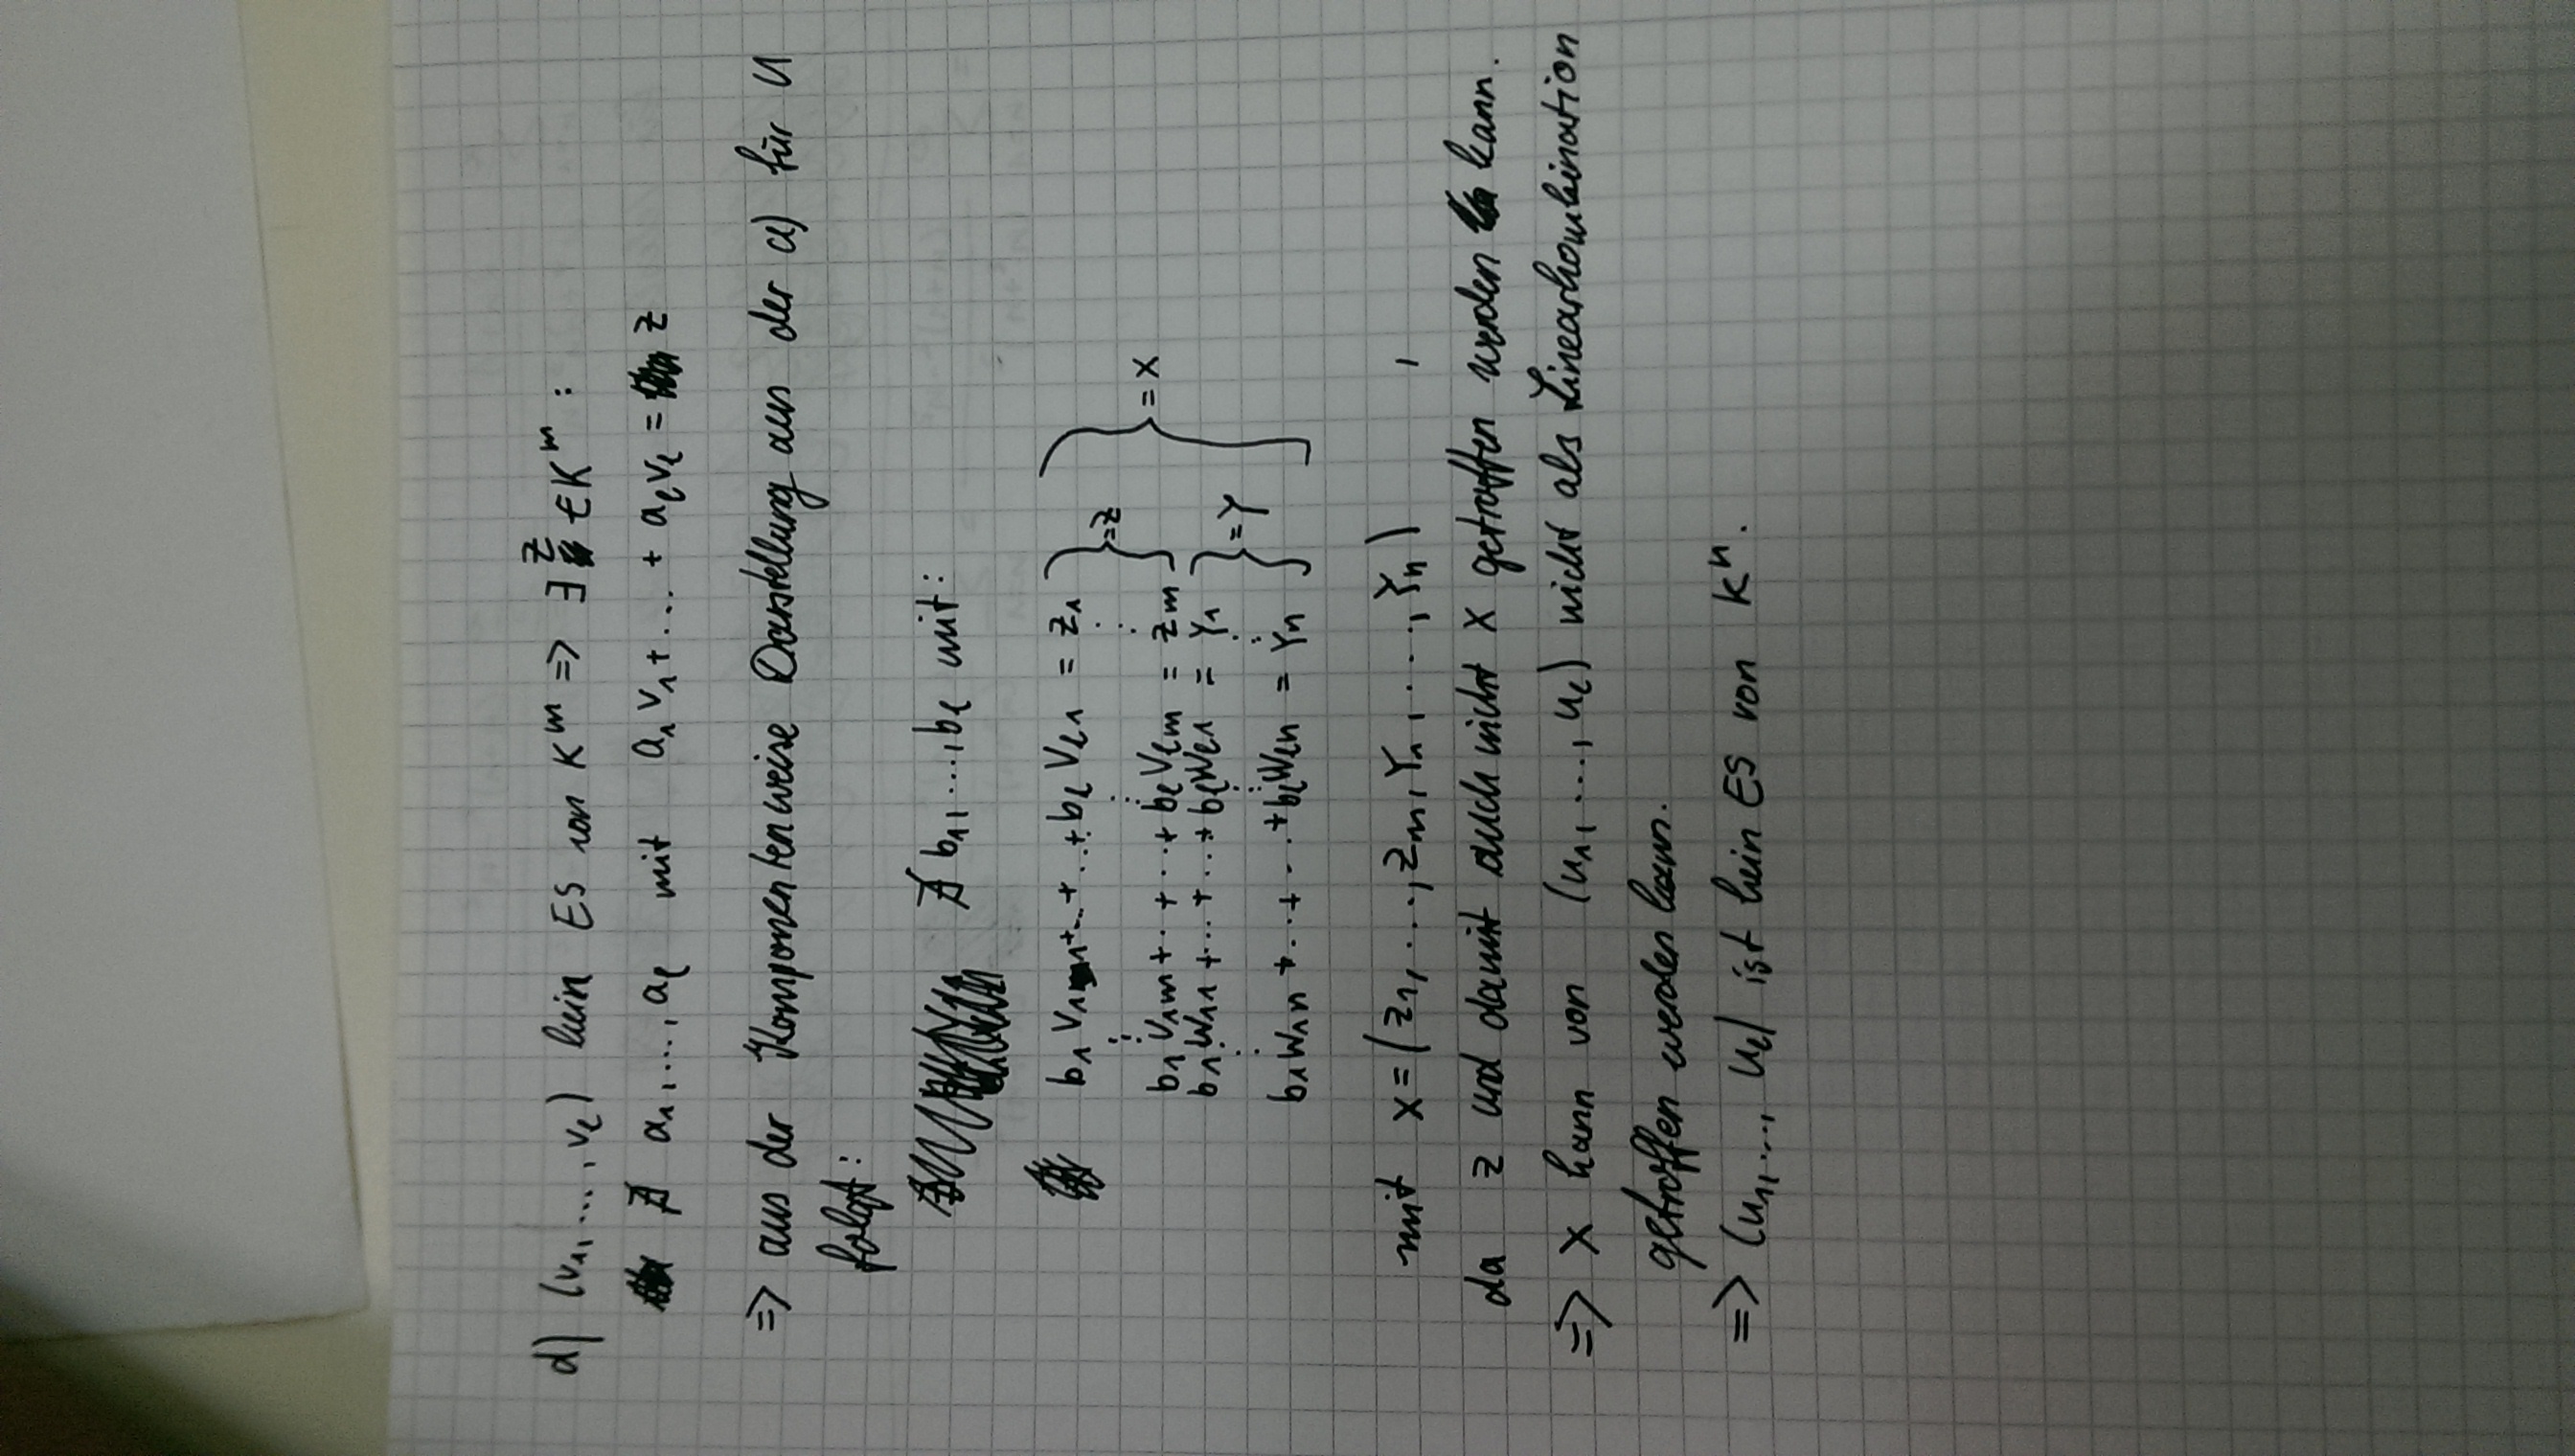 d) (v₁, ..., vₗ) kein ES von Kᵐ => ∃ z ∈ Kᵐ :
∄ a₁, ..., aₗ mit a₁v₁ + ... + aₗvₗ = z
=> aus der Komponentenweise Darstellung aus der a) für u
folgt:
∄ b₁, ..., bₗ mit:
b₁v₁₁ + ... + ... + bₗvₗ₁ = z₁
⋮ ⋮ ⋮ } = z
b₁v₁ₘ + ... + ... + bₗvₗₘ = zₘ
b₁w₁₁ + ... + ... + bₗwₗ₁ = y₁ } = x
⋮ ⋮ ⋮ } = y
b₁w₁ₙ + ... + ... + bₗwₗₙ = yₙ
mit x = (z₁, ..., zₘ, y₁, ..., yₙ) ,
da z und damit auch nicht x getroffen werden kann.
=> x kann von (u₁, ..., uₗ) nicht als Linearkombination
getroffen werden kann.
=> (u₁, ..., uₗ) ist kein ES von Kⁿ.